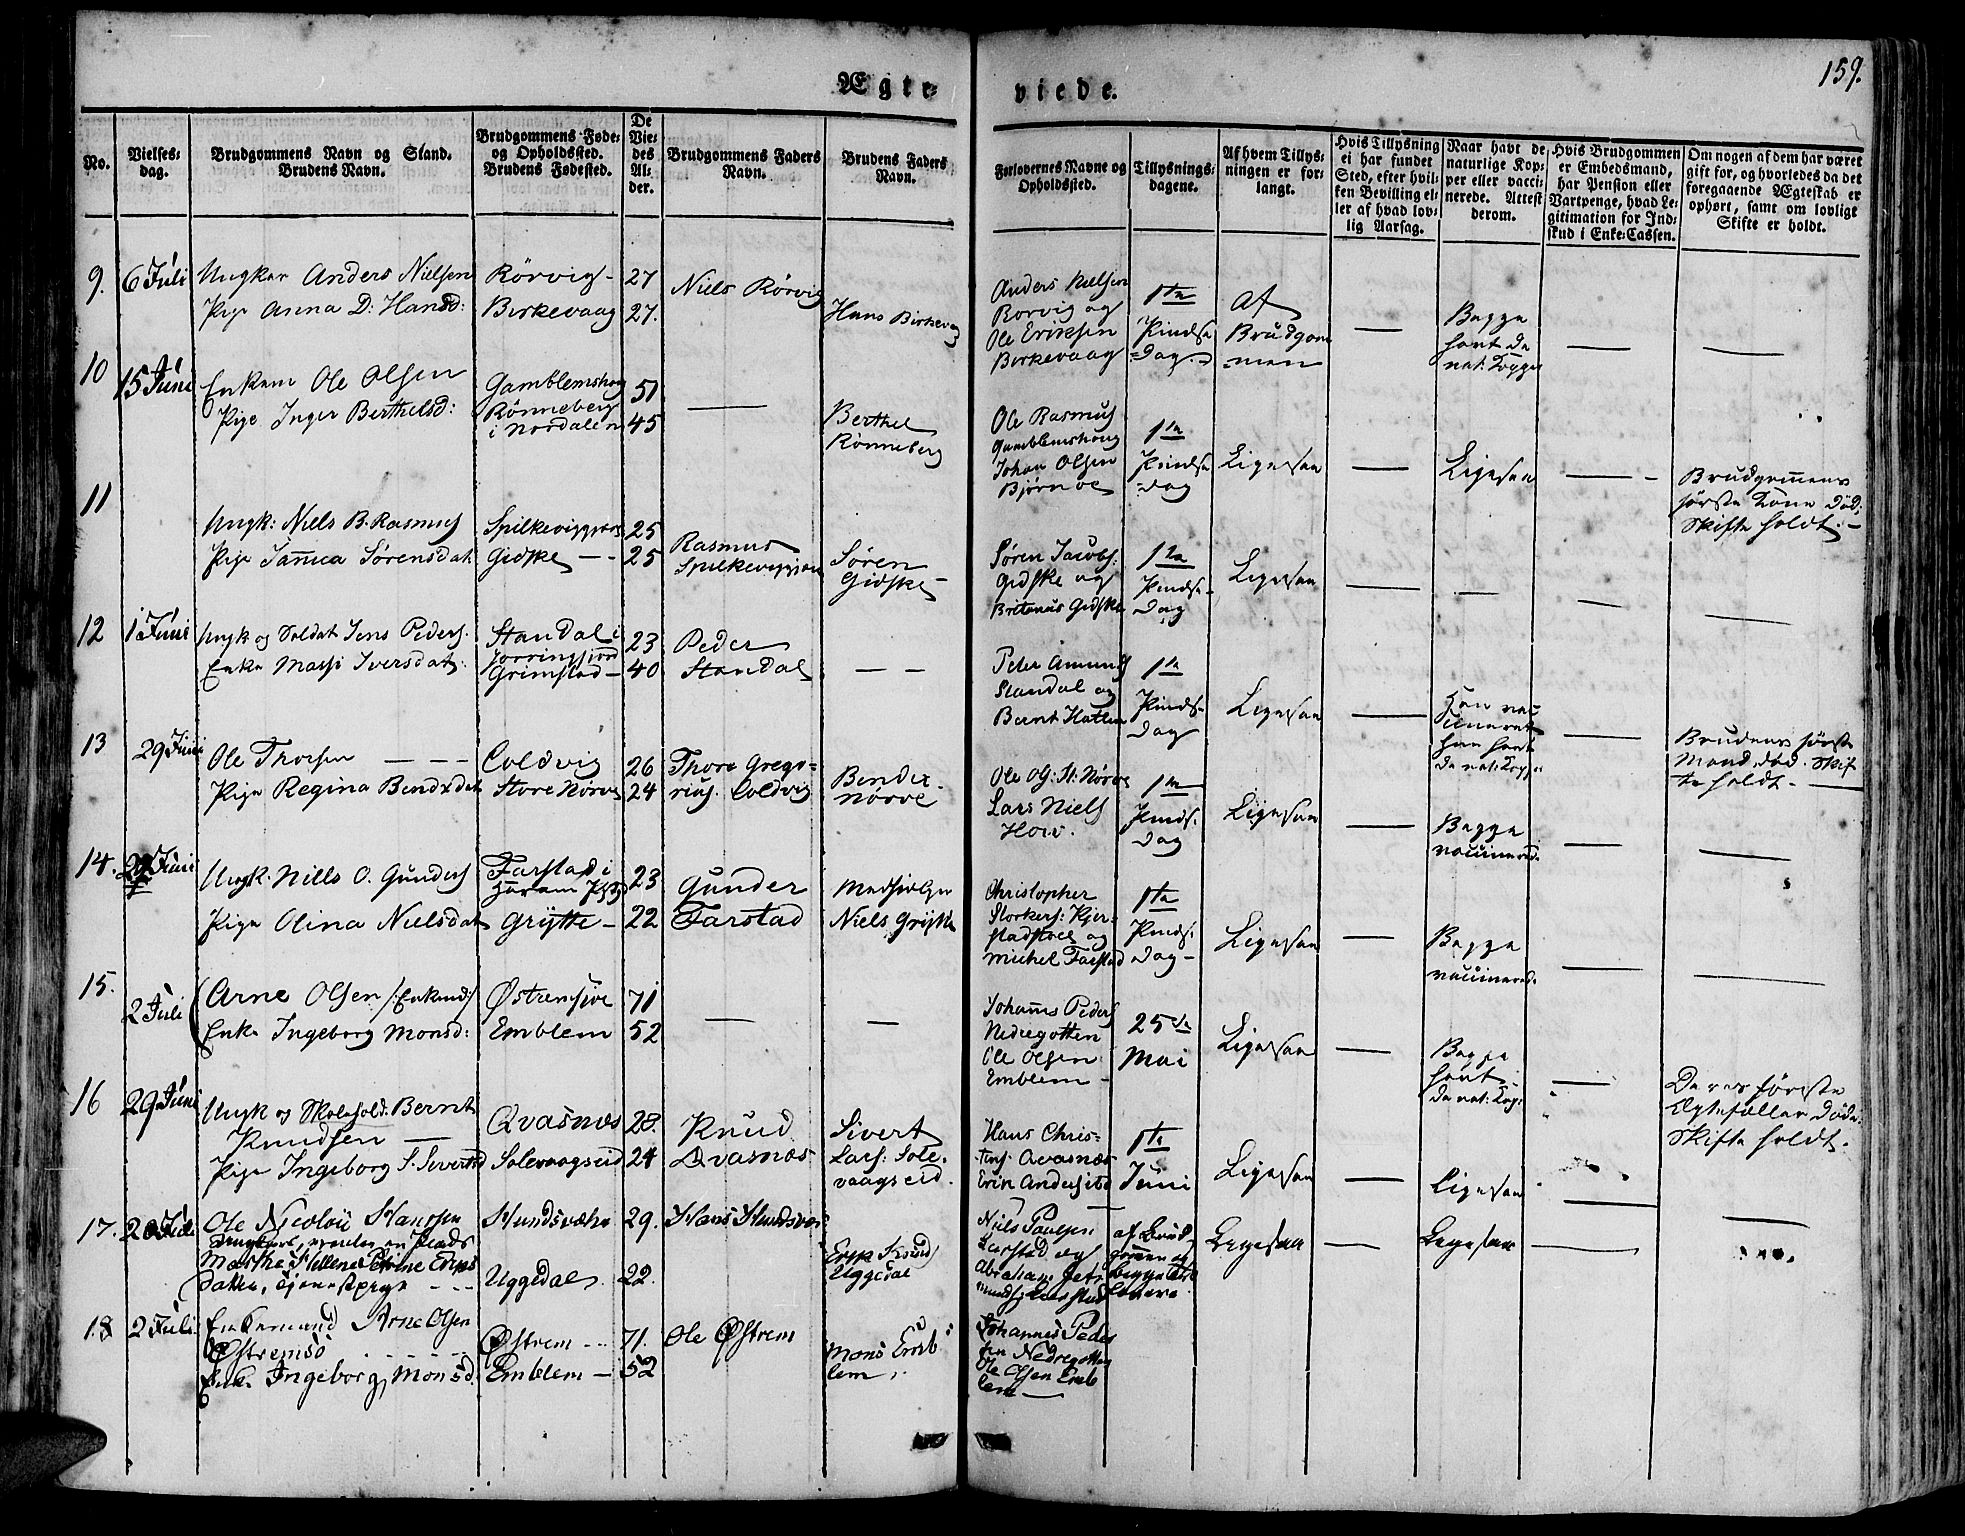 159.
Ægte-
viede.
No.
Vielses-
dag.
Brudgommens Navn og Stand.
Brudens Navn.
Brudgommens Føde-
og Opholdssted.
Brudens Fødested.
De
Vie-
des
Al-
der.
Brudgommens Faders
Navn.
Brudens Faders
Navn.
Forlovernes Navne og
Opholdssted.
Tillysnings-
dagene.
Af hvem Tillys-
ningen er for-
langt.
Hvis Tillysning
ei har fundet
Sted, efter hvil-
ken Bevilling el-
ler af hvad lov-
lig Aarsag.
Naar havt de
naturlige Kop-
per eller vacci-
nerede. Attest
derom.
Hvis Brudgommen
er Embedsmand,
har Pension eller
Vartpenge, hvad Le-
gitimation for Ind-
skud i Enke-Cassen.
Om nogen af dem har været
gift før, og hvorledes da det
foregaaende Ægteskab er
ophørt, samt om lovligt
Skifte er holdt.
9.
6 Juli
Ungkar Anders Nielsen
Pige Anna D: Hansd:
Rörvig -
Birkevaag
27
27.
Niels Rörvig
Hans Birkevag
Anders Nielsen
Rorvig og
Ole Eriksen
Birkevaag
1ste
Pindse
=dag.
Af
Brudgom
men
Begge
havt de
nat: Kopper
10
15 Juni
Enkem Ole Olsen
Pige Inger Berthelsd:
Gamblemshoug
Rönneberg
i Nordalen
51
45
Berthel
Rönneberg
Ole Rasmus
Gamblemshoug
Johan Olsen
Bjørnøe
1ste
Pindse
=dag
Ligesaa
Ligesaa
Brudgommens
første Kone død;
Skifte holdt. -
11
Ungk: Niels B. Rasmus
Pige Jamea Sörensdat
Spilkeviggjære
Gidske - -
25
25
Rasmus
Spilkeviggjære
Søren
Gidske -
Søren Jacobs:
Gidske og
Gidske
1ste
Pindse-
dag
Ligesaa
12
1 Juni
Ungk og Soldat Jens Peders.
Enke Massi Iversdat:
Standal i
Jørringfjord
Grimstad -
23
40
Peder
Standal
- -
Peter Amunds
Standal og
Bernt Hatlem
1ste
Pindse
dag
Ligesaa
Han vac
cineret
hun havt
de nat: Kopper
Brudens første
Mand død. Skif
te holdt. -
13
29 Juni
Ole Thorsen - - -
Pige Regina Bendxdat
Coldvig
Store Nørve
26
24
Thore Grego-
rius. Coldvig
Bendix
Nørve
Ole Ol: St: Nørve
Lars Niels
How.
1ste
Pinds.
dag
Ligesaa
Begge
vaccinered.
14.
29 Juni
Ungk. Nills O. Gunders
Pige Olina Nielsdat
Farstad i
Haram
Grÿtte -
23
22
Gunder
Farstad
Niels Grÿtte
Christopher
Storkers: Kjer-
stadstoel og
Michel Farstad
1ste
Pinds.
dag -
Ligesaa
Begge
vaccinered.
15.
2 Juli
Arne Olsen /: Enkmd:/
Enke Ingeborg Monsd:
Østremsøe
Emblem
71
52
Johans Peders
Nedregotten
Ole Olsen
Emblem -
25de
Mai
Ligesaa
Begge
havt
de nat: Kop:
Deres første
Ægtefæller døde.
Skifte holdt.
16
29 Juni
Ungk og Skolehold. Bernt
Knudsen -
Pige Ingeborg S. Sivertsd
Qvasnæs
Solevaagseid
28.
24
Knud
Qvasnæs
Sivert
Lars: Sole-
vaagseid.
Hans Chris-
tens. Qvasnæs
Erik
1ste
Juni
Ligesaa
Ligesaa
17.
20 Juli
Ole Nicolai Hanssen
Marthe Hellene Petrine Eriks
datter, Tjenestepige - - -
Hundsvæhr
Uggedal.
29.
22.
Hans Hundsvær
Erik
Uggedal
Niels Paulsen
og
Abraham
af Brud-
gommen og
begge
Ligesaa
Ligesaa
18
2 Juli
Enkemand Arne Olsen
Østremsö
Enke Ingeborg Monsd.
Østrem - -
Emblem -
71.
52
Ole Østrem
Mons Emb
lem.
Johannes Peder
sen Nedregotten
Ole Olsen Emb
lem